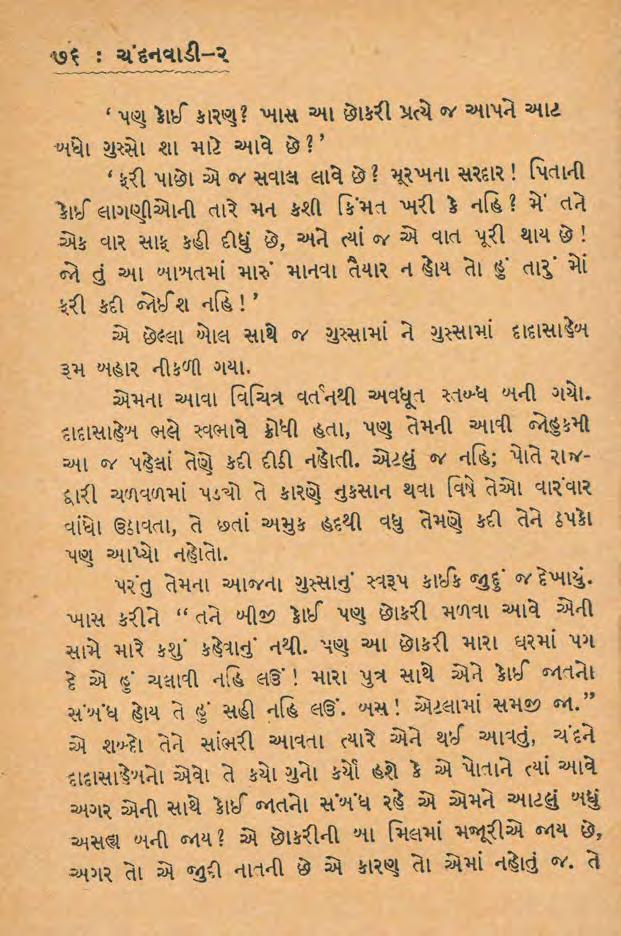 ૭૬ : ચંદનવાડી–૨
‘ પણ કોઈ કારણ? ખાસ આ છોકરી પ્રત્યે જ આપને આટ
બધો ગુસ્સો શા માટે આવે છે?’
‘ ફરી પાછો એ જ સવાલ લાવે છે? મૂરખના સરદાર! પિતાની
કોઈ લાગણીઓની તારે મન કશી કિંમત ખરી કે નહિ? મેં તને
એક વાર સાફ કહી દીધું છે, અને ત્યાં જ એ વાત પૂરી થાય છે!
જો તું આ બાબતમાં મારું માનવા તૈયાર ન હોય તો હું તારું મોં
ફરી કદી જોઈશ નહિ!’
એ છેલ્લા બોલ સાથે જ ગુસ્સામાં ને ગુસ્સામાં દાદાસાહેબ
રૂમ બહાર નીકળી ગયા.
એમના આવા વિચિત્ર વર્તનથી અવધૂત સ્તબ્ધ બની ગયો.
દાદાસાહેબ ભલે સ્વભાવે ક્રોધી હતા, પણ તેમની આવી જોહુકમી
આ જ પહેલાં તેણે કદી દીઠી નહોતી. એટલું જ નહિ; પોતે રાજ-
દ્વારી ચળવળમાં પડ્યો તે કારણે નુકસાન થવા વિષે તેઓ વારંવાર
વાંધો ઉઠાવતા, તે છતાં અમુક હદથી વધુ તેમણે કદી તેને ઠપકો
પણ આપ્યો નહોતો.
પરંતુ તેમના આજના ગુસ્સાનું સ્વરૂપ કાઈક જુદું જ દેખાયું.
ખાસ કરીને “ તને બીજી કોઈ પણ છોકરી મળવા આવે એની
સામે મારે કશું કહેવાનું નથી. પણ આ છોકરી મારા ઘરમાં પગ
દે એ હું ચલાવી નહિ લઉં! મારા પુત્ર સાથે એને કોઈ જાતનો
સંબંધ હોય તે હું સહી નહિ લઉં. બસ! એટલામાં સમજી જા.”
એ શબ્દો તેને સાંભરી આવતા ત્યારે એને થઈ આવતું, ચંદને
દાદાસાહેબનો એવો તે કયો ગુનો કર્યો હશે કે એ પોતાને ત્યાં આવે
અગર એની સાથે કોઈ જાતનો સંબંધ રહે એ એમને આટલું બધું
અસહ્ય બની જાય? એ છોકરીની બા મિલમાં મજૂરીએ જાય છે,
અગર તો એ જુદી નાતની છે એ કારણ તો એમાં નહોતું જ. તે